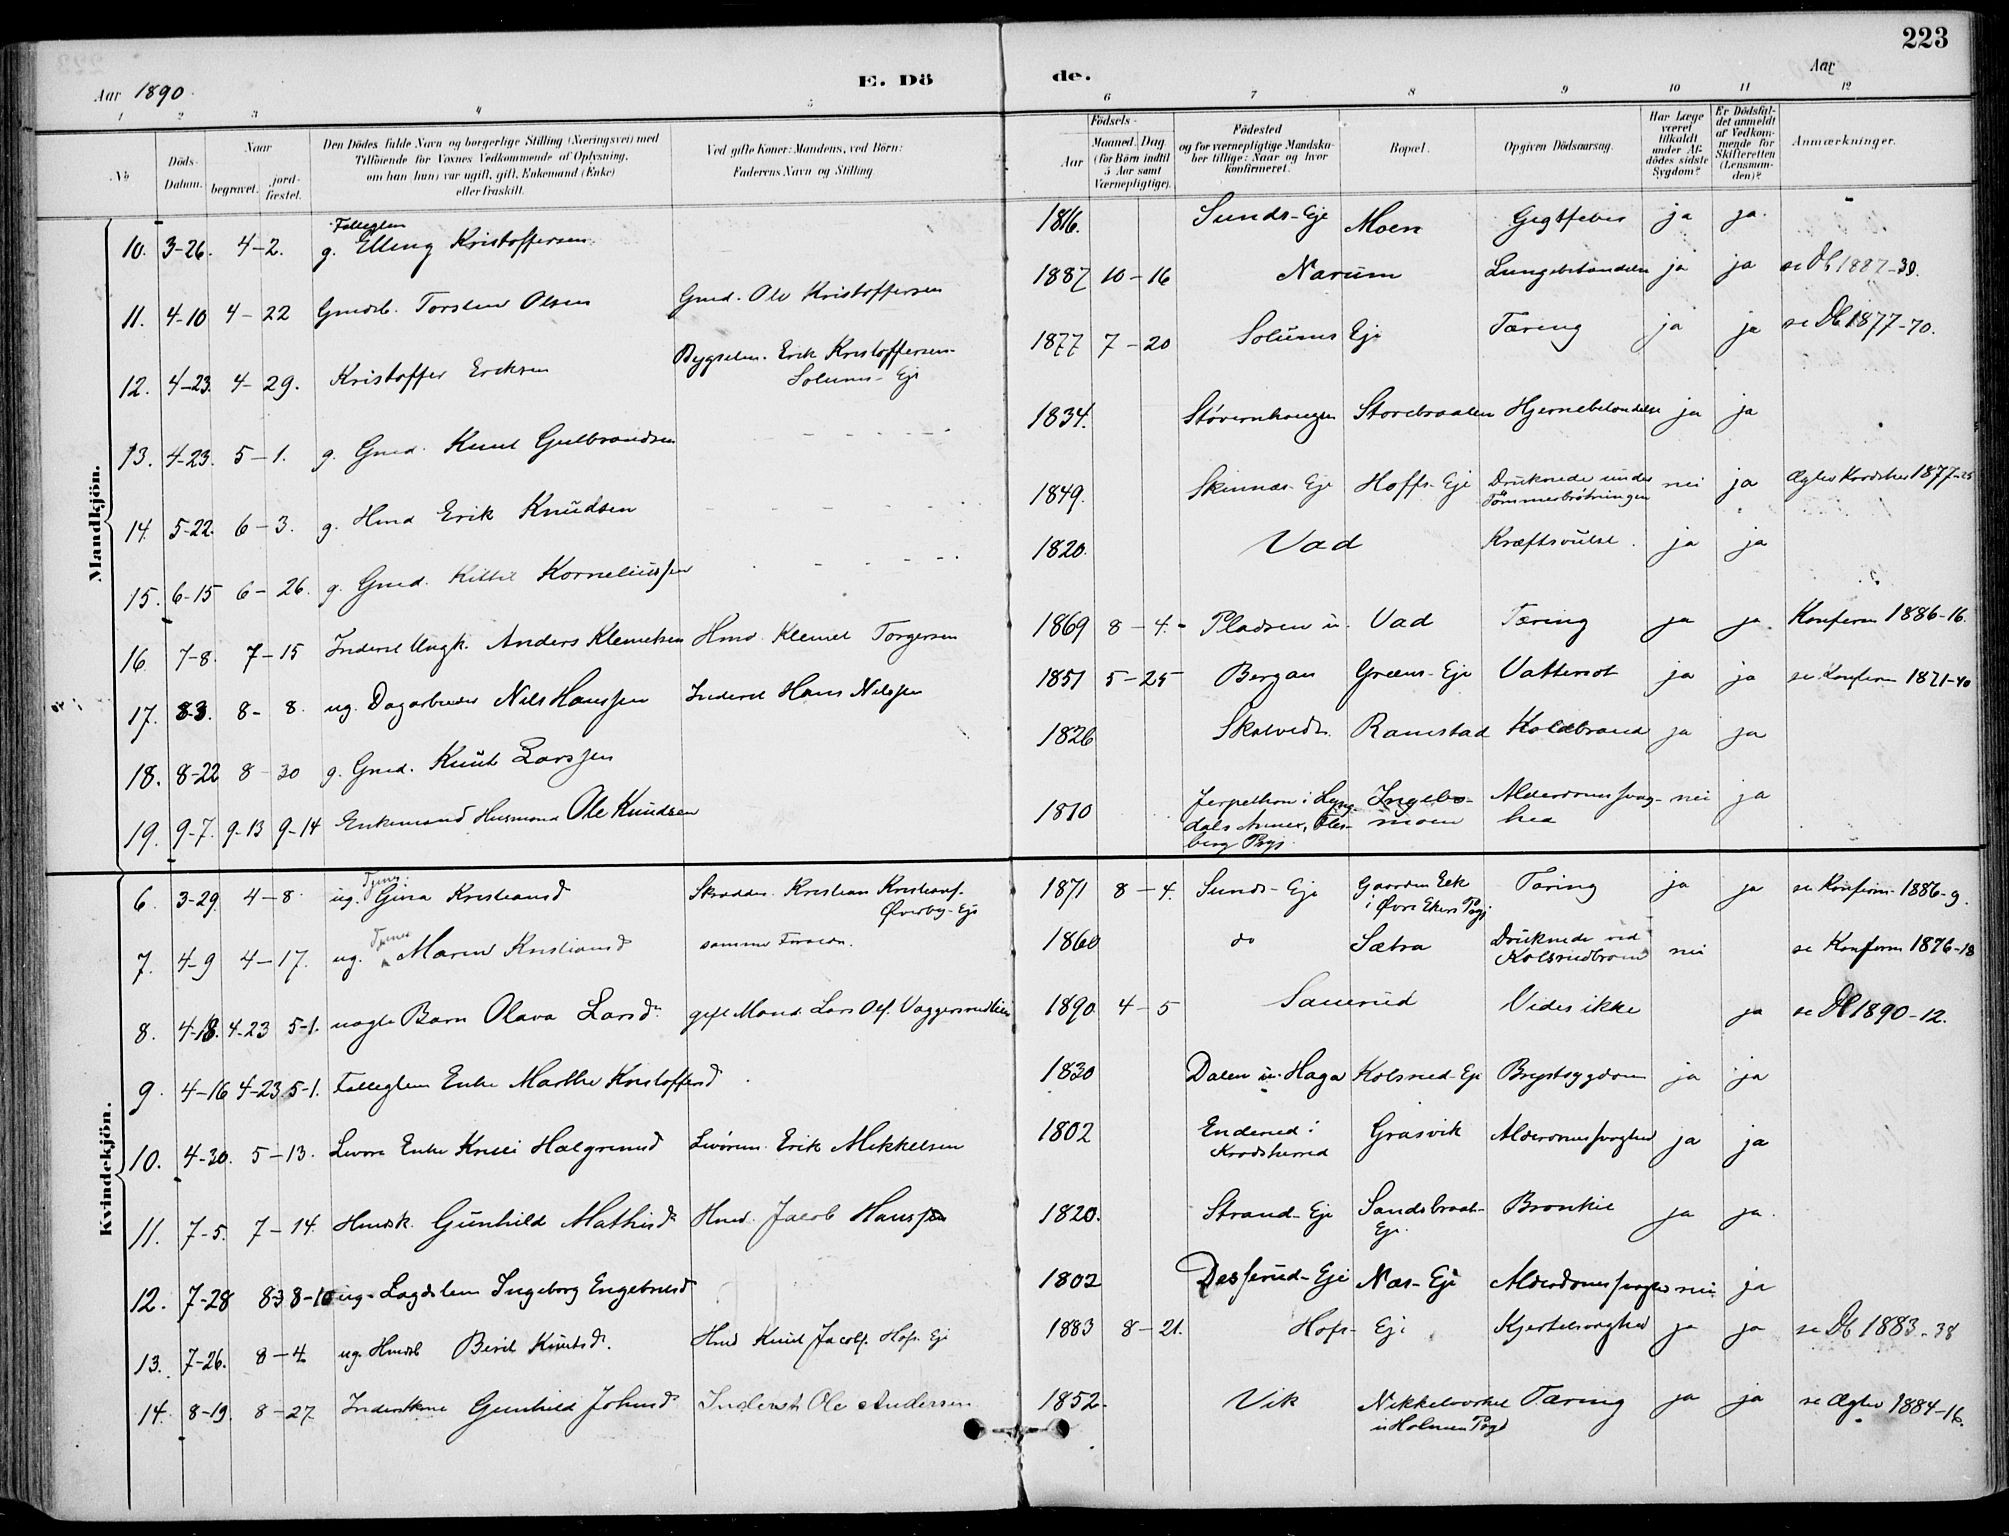 223
Aar 1890.
E. Dö
de.
Aar
1 2 3 4 5 6 7 8 9 10 11 12
No
Döds-Datum.
Naar
begravet.
jord-fæstet.
Den Dödes fulde Navn og borgerlige Stilling (Næringsvei) med
Tilföiende for Voxnes Vedkommende af Oplysning,
om han (hun) var ugift, gift, Enkemand (Enke)
eller fraskilt.
Ved gifte Koner: Mandens, ved Börn:
Faderens Navn og Stilling
Födsels-
Aar
Maaned. Dag
(for Börn indtil
5 Aar samt
Værnepligtige).
Födested
og for værnepligtige Mandska-
ber tillige: Naar og hvor
konfirmeret.
Bopæl.
Opgiven Dödsaarsag.
Har Læge
været
tilkaldt
under Af-
dödes sidste
Sygdom?
Er Dödsfal-
det anmeldt
af Vedkom-
mende for
Skifteretten
(Lensman-
den)?
Anmærkninger.
Mandkjön.
10. 3-26. 4-2. g. Elling Kristoffersen 1816. Sunds-Eje Moen Gigtfeber ja ja.
11. 4-10 4-22 Gmdsb. Torsten Olsen Gmd. Ole Kristoffersen 1887 10-16 Narum Lungebetændelse ja ja se Db 1887-39.
12. 4-23. 4-29. Kristoffer Eriksen Bygselm. Erik Kristoffersen
Solums-Eje 1877 7-20 Solums Eje Tæring ja ja se Db 1877-70.
13. 4-23. 5-1. g. Gmd. Knut Gulbrandsen 1834. Støvernhaugen Storebraaten Hjernebetændelse ja ja
14. 5-22. 6-3. g. Hmd Erik Knudsen 1849. Skinnes-Eje Hoffs-Eje Druknede under
Tømmerbrötningen nei ja Ægtev Krødsher 1877-25
15. 6-15 6-26. g. Gmd. Kittil Korneliussen 1820. Vad Kræftsvulst. ja ja
16 7-8. 7-15 Inderst Ungk. Anders Klemetsen Hmd. Klemet Torgersen 1869 8-4. Pladsen u. Vad Tæring ja ja. Konfirm 1886-16.
17. 8-3. 8-8. ug. Dagarbeider Nils Hanssen Inderst Hans Nilssen 1851 5-25 Bergan Græns-Eje Vattersot ja ja se Konfirm 1871-40
18. 8-22 8-30 g. Gmd. Knut Larssen 1826 Skalvedt. Ramstad Koldbrand ja ja
19. 9-7. 9-13 9-14 Enkemand Husmand Ole Knudsen 1810 Jerpethon i Lyng-
dals Annex, Fles-
berg Prgj. Ingebo-
moen Alderdomssvag-
hed nei ja
Kvindekjön.
6. 3-29. 4-8. ug. Gina Kristiansd Skrædder. Kristian Kristians.
Øverby-Eje 1871 8-4. Sunds-Eje Gaarden Eek
i Øvre Ekers Prgj Tæring ja ja se Konfirm. 1886-9.
7. 4-9 4-17. ug. Maren Kristiansd samme Foreldr. 1860 do Sætra Druknede ved
Kolsrudbroen nei se Konfirm 1876-18
8. 4-18. 4-23 5-1. uægte Barn Olava Larsd. gift Mand Lars Ols. Vaggersrudlien 1890 4-5 Sanerud Vides ikke ja se Db 1890-12.
9. 4-16 4-23. 5-1. Fattiglem Enke Marthe Kristoffersd. 1830 Dalen u. Haga Kolsrud-Eje Brystsygdom ja ja
10. 4-30. 5-13. Enke Halgrimsd Erik Mikkelsen 1802 Enderud i
Krødsherred Grasvik Alderdomssvaghed ja ja
11. 7-5. 7-14. Hmdsk. Gunhild Mathisd. Hmd. Jacob Hanssen 1820. Strand-Eje Sandsbraat-
Eje. Bronkit ja ja.
12. 7-28 8-3 8-10 ug. Lægdslem Ingeborg Engebretsd 1802 Desserud-Eje Næs-Eje Alderdomssvaghed nei ja
13. 7-26. 8-4. ug. Hmdsb Berit Knutsd. Hmd Knut Jacobs. Hofs. Eje 1883 8-21. Hofs-Eje Kjertelsvaghed ja ja se Db 1883-38
14. 8-19. 8-27 Inderstkone Gunhild Johnsd Inderst Ole Andersen 1852. Vik Nikkelverket
u Holmen Prgd Tæring ja ja se Ægtev 1884-16.